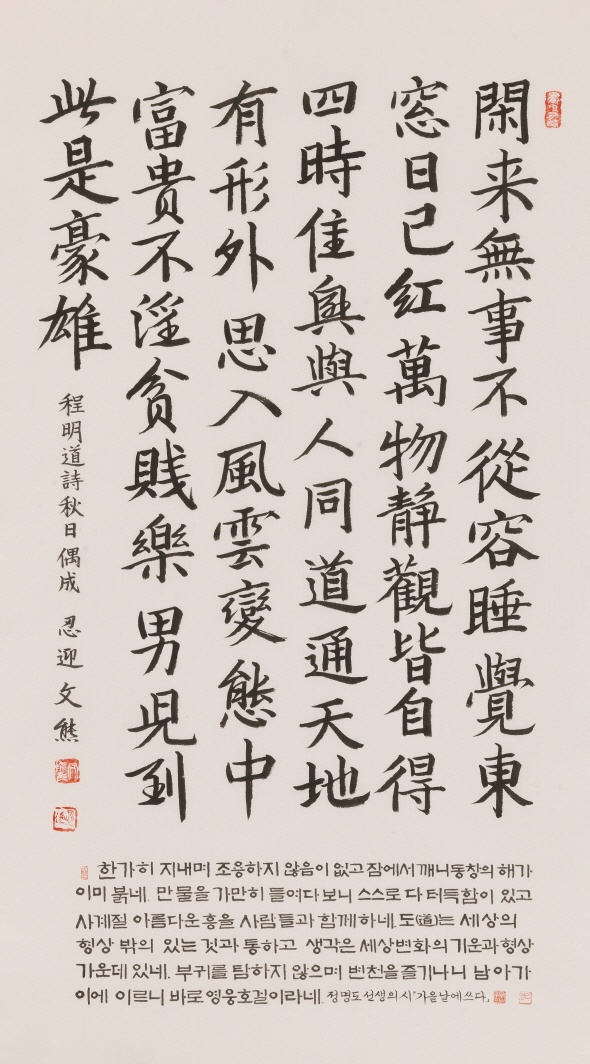 閑来無事不從容睡覺東
窓日已紅萬物静觀皆自得
四時佳興與人同道通天地
有形外思入風雲變態中
富貴不淫貧賎樂男児到
此是豪雄
程明道詩秋日偶成 忍迎文熊
한가히 지내며 조용하지 않음이 없고 잠에서 깨니 동창의 해가
이미 붉네. 만물을 가만히 들여다보니 스스로 다 터득함이 있고
사계절 아름다운 흥을 사람들과 함께하네. 도(道)는 세상의
형상 밖의 있는 것과 통하고 생각은 세상변화의 기운과 형상
가운데 있네. 부귀를 탐하지 않으며 변천을 즐기나니 남아가
이에 이르니 바로 영웅호걸이라네. 정명도 선생의 시 "가을날에 쓰다"